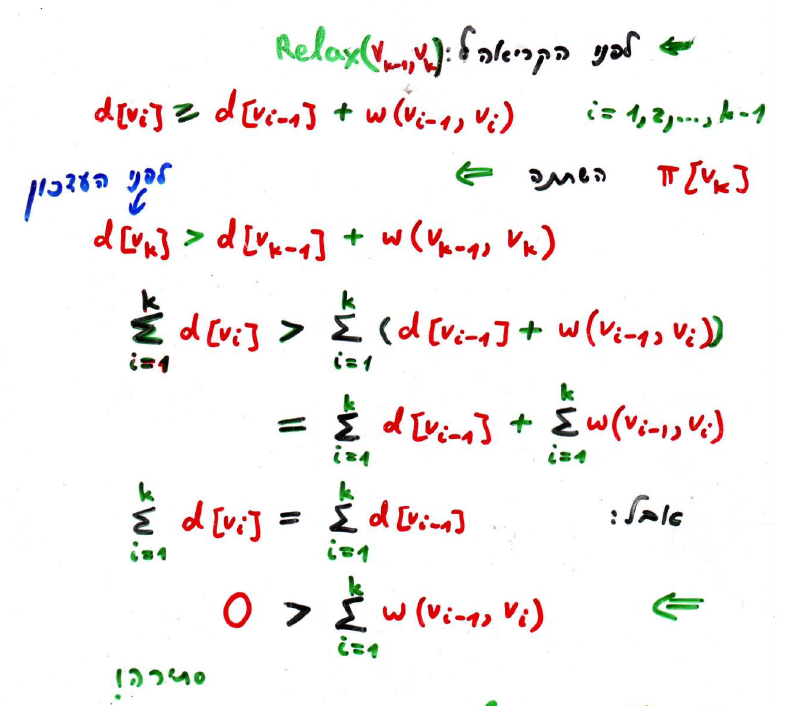 ⇐ לפני הקריאה ל: Relax(v_{k-1}, v_k)
d[v_i] ≥ d[v_{i-1}] + w(v_{i-1}, v_i)   i = 1, 2, ..., k-1
π[v_k] השתנה ⇐
לפני העדכון
d[v_k] > d[v_{k-1}] + w(v_{k-1}, v_k)
∑_{i=1}^{k} d[v_i] > ∑_{i=1}^{k} (d[v_{i-1}] + w(v_{i-1}, v_i))
= ∑_{i=1}^{k} d[v_{i-1}] + ∑_{i=1}^{k} w(v_{i-1}, v_i)
אבל: ∑_{i=1}^{k} d[v_i] = ∑_{i=1}^{k} d[v_{i-1}]
⇐ 0 > ∑_{i=1}^{k} w(v_{i-1}, v_i)
סתירה!